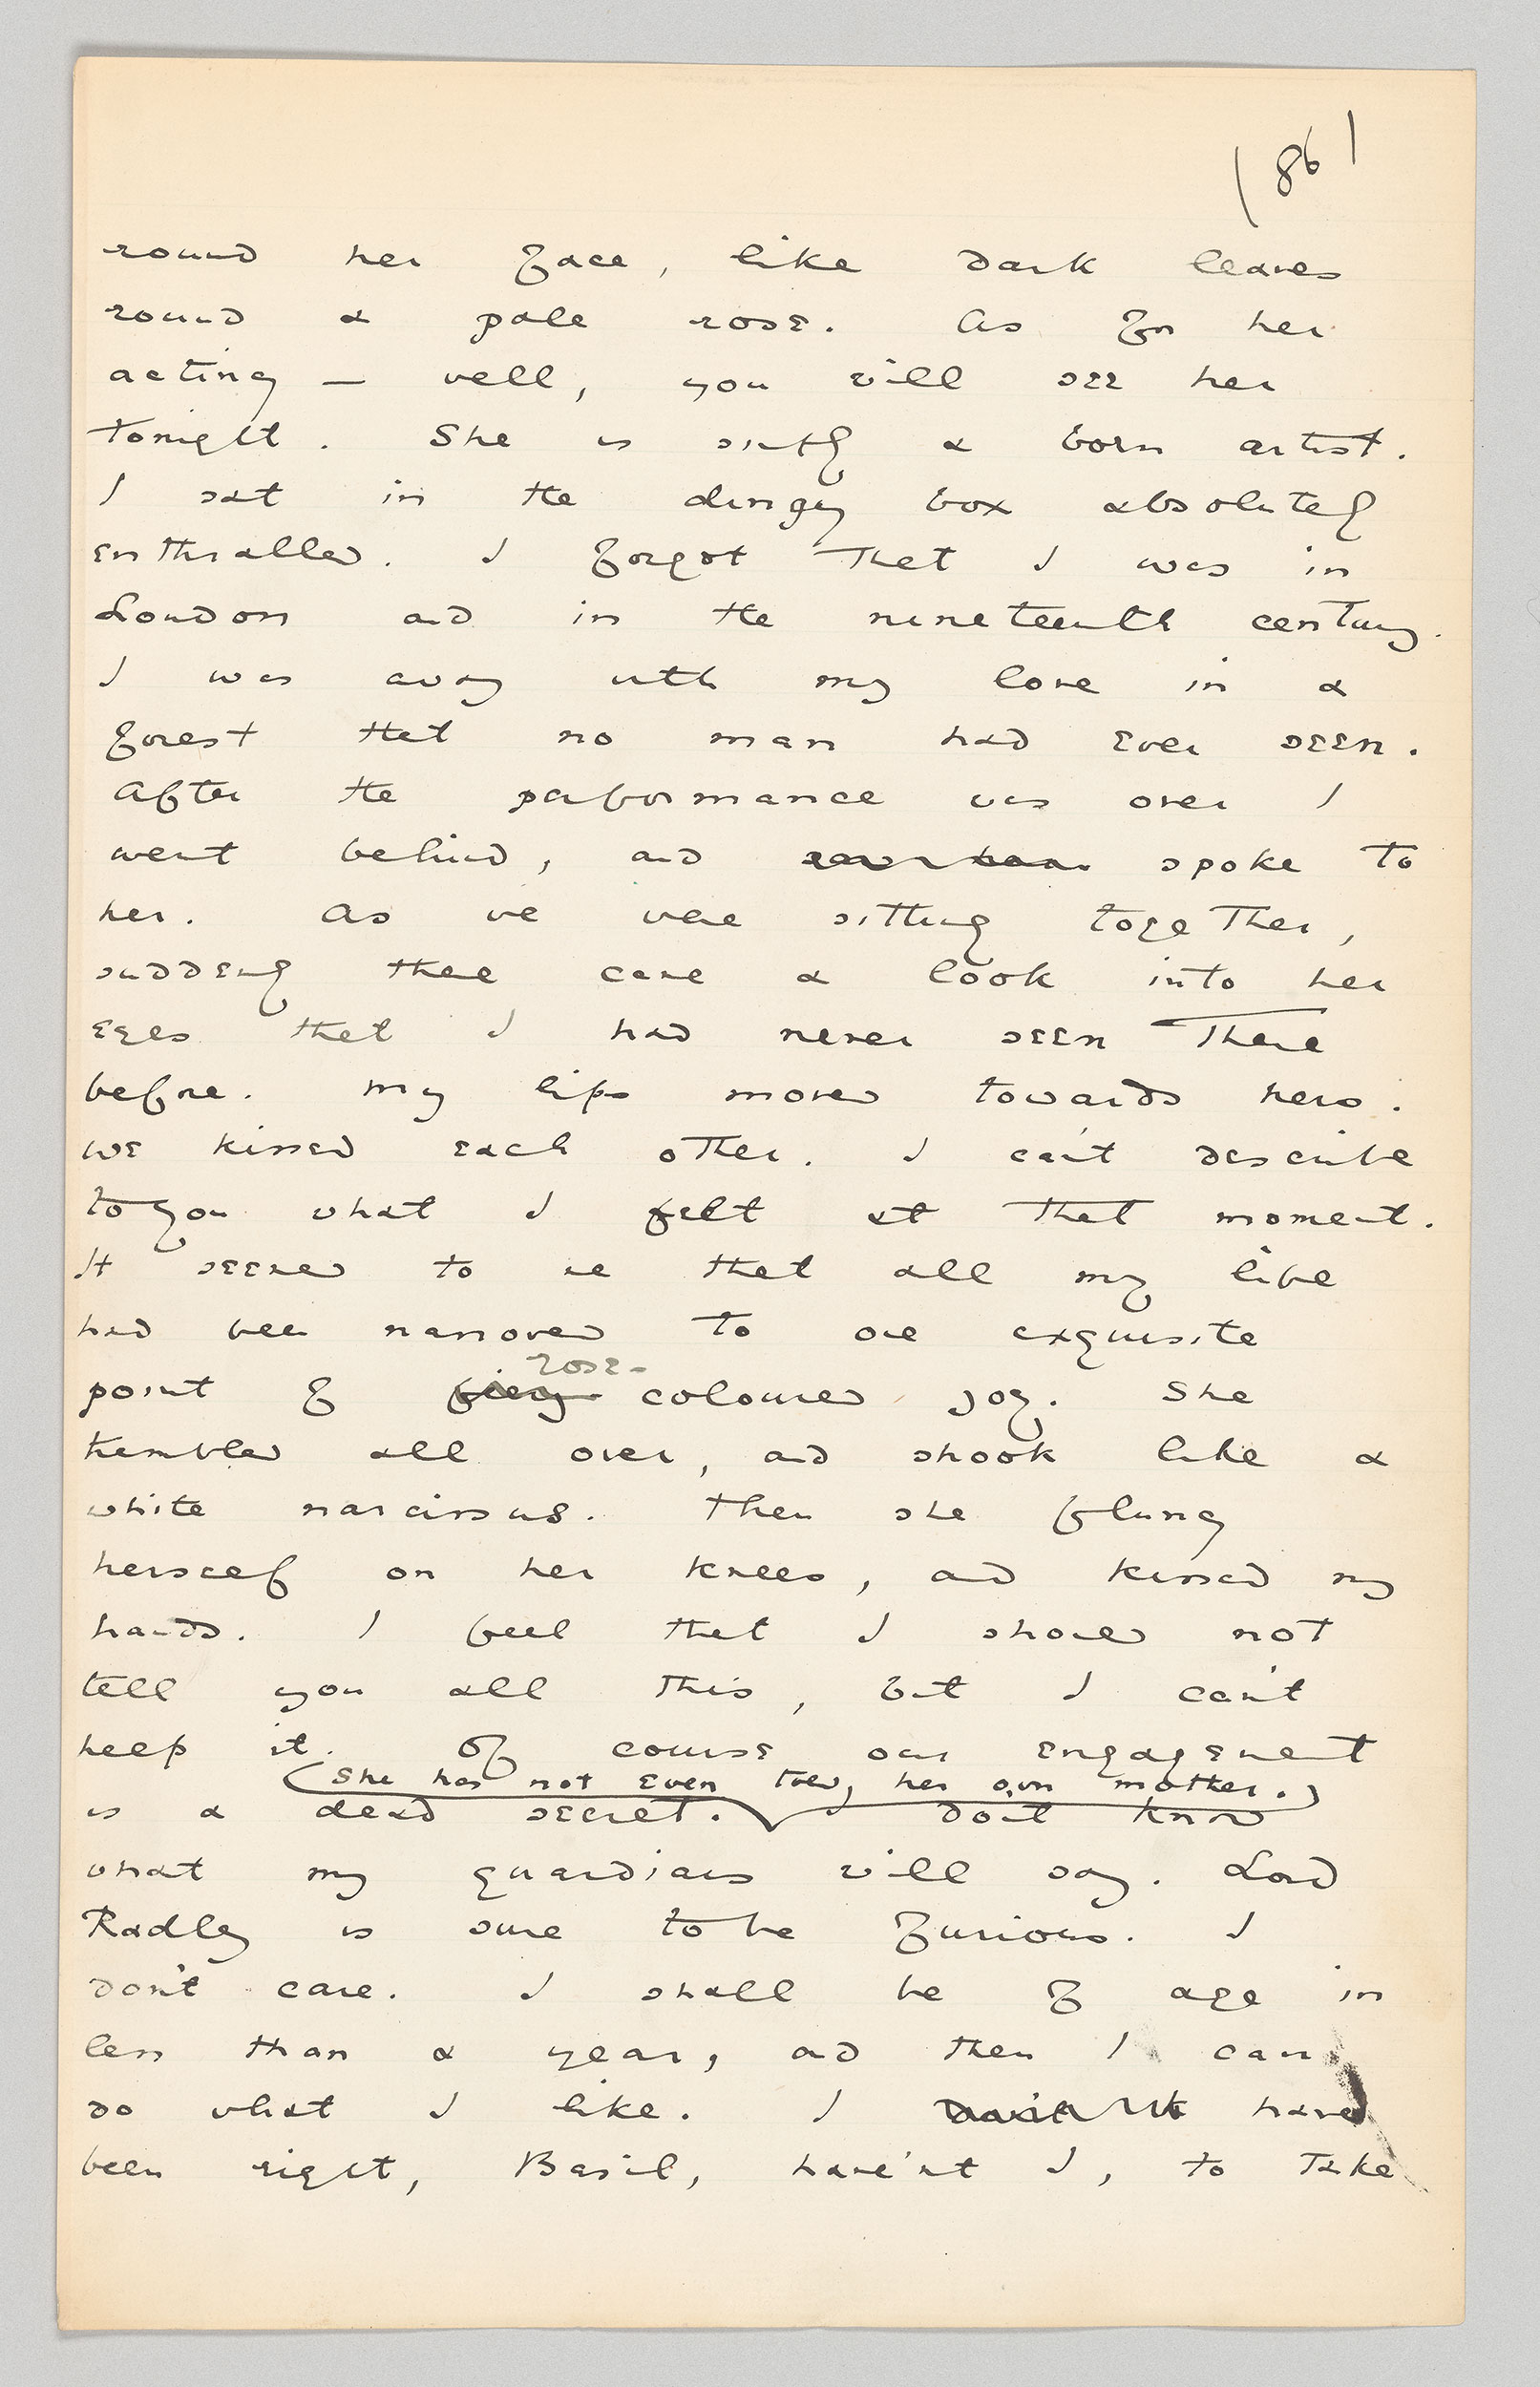 86
round her face, like dark leaves
round a pale rose. As for her
acting — well, you will see her
tonight. She is simply a born artist.
I sat in the dingy box absolutely
enthralled. I forgot that I was in
London and in the nineteenth century.
I was away with my love in a
forest that no man had ever seen.
After the performance was over I
went behind, and spoke to
her. As we were sitting together,
suddenly there came a look into her
eyes that I had never seen there
before. My lips moved towards hers.
We kissed each other. I can't describe
to you what I felt at that moment.
It seemed to me that all my life
had been narrowed to one exquisite
rose-
point of fiery coloured joy. She
trembled all over, and shook like a
white narcissus. Then she flung
herself on her knees, and kissed my
hands. I feel that I should not
tell you all this, but I can't
help it. Of course our engagement
(She has not even told her own mother.)
is a dead secret. don't know
what my guardians will say. Lord
Radley is sure to be furious. I
don't care. I shall be of age in
less than a year, and then I can
do what I like. I have
been right, Basil, have'nt I, to take